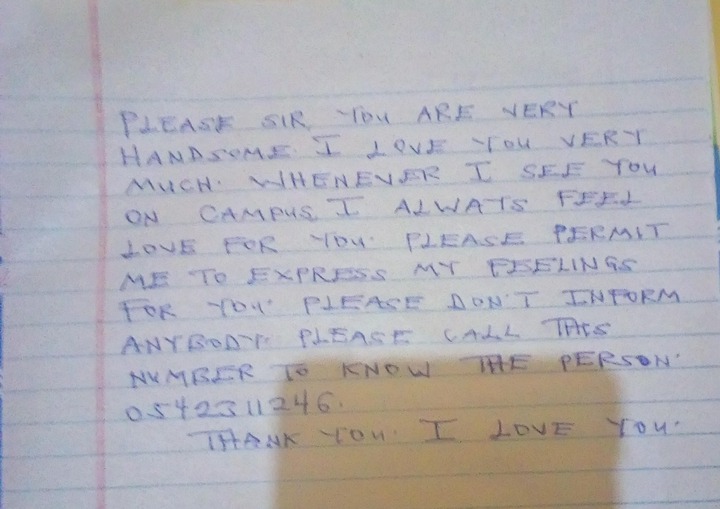 PLEASE SIR, YOU ARE VERY
HANDSOME. I LOVE YOU VERY
MUCH. WHENEVER I SEE YOU
ON CAMPUS, I ALWAYS FEEL
LOVE FOR YOU. PLEASE PERMIT
ME TO EXPRESS MY FEELINGS
FOR YOU. PLEASE DON'T INFORM
ANYBODY. PLEASE CALL THIS
NUMBER TO KNOW THE PERSON.
0542311246.
THANK YOU. I LOVE YOU.